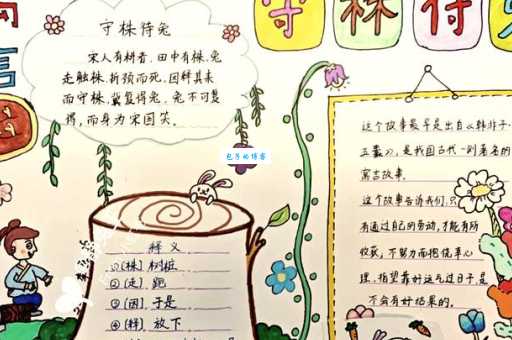 寓
言
守株待兔
守株待兔
宋人有耕者,田中有株,兔
走触株,折颈而死,因释其耒
而守株,冀复得兔,兔不可复
得,而身为宋国笑。
包月的博客
释义
①(株)树桩
②(走)跑
③(因)于是
④(释)放下
这个故事最早是出自《韩非子·
五蠹》,是我国古代一则著名的
寓言故事。
这个故事告诉我们,只
有通过自己的劳动,才能有所
收获,不努力而抱侥幸心
理,指望靠好运气过日子,是
不会有好结果的。